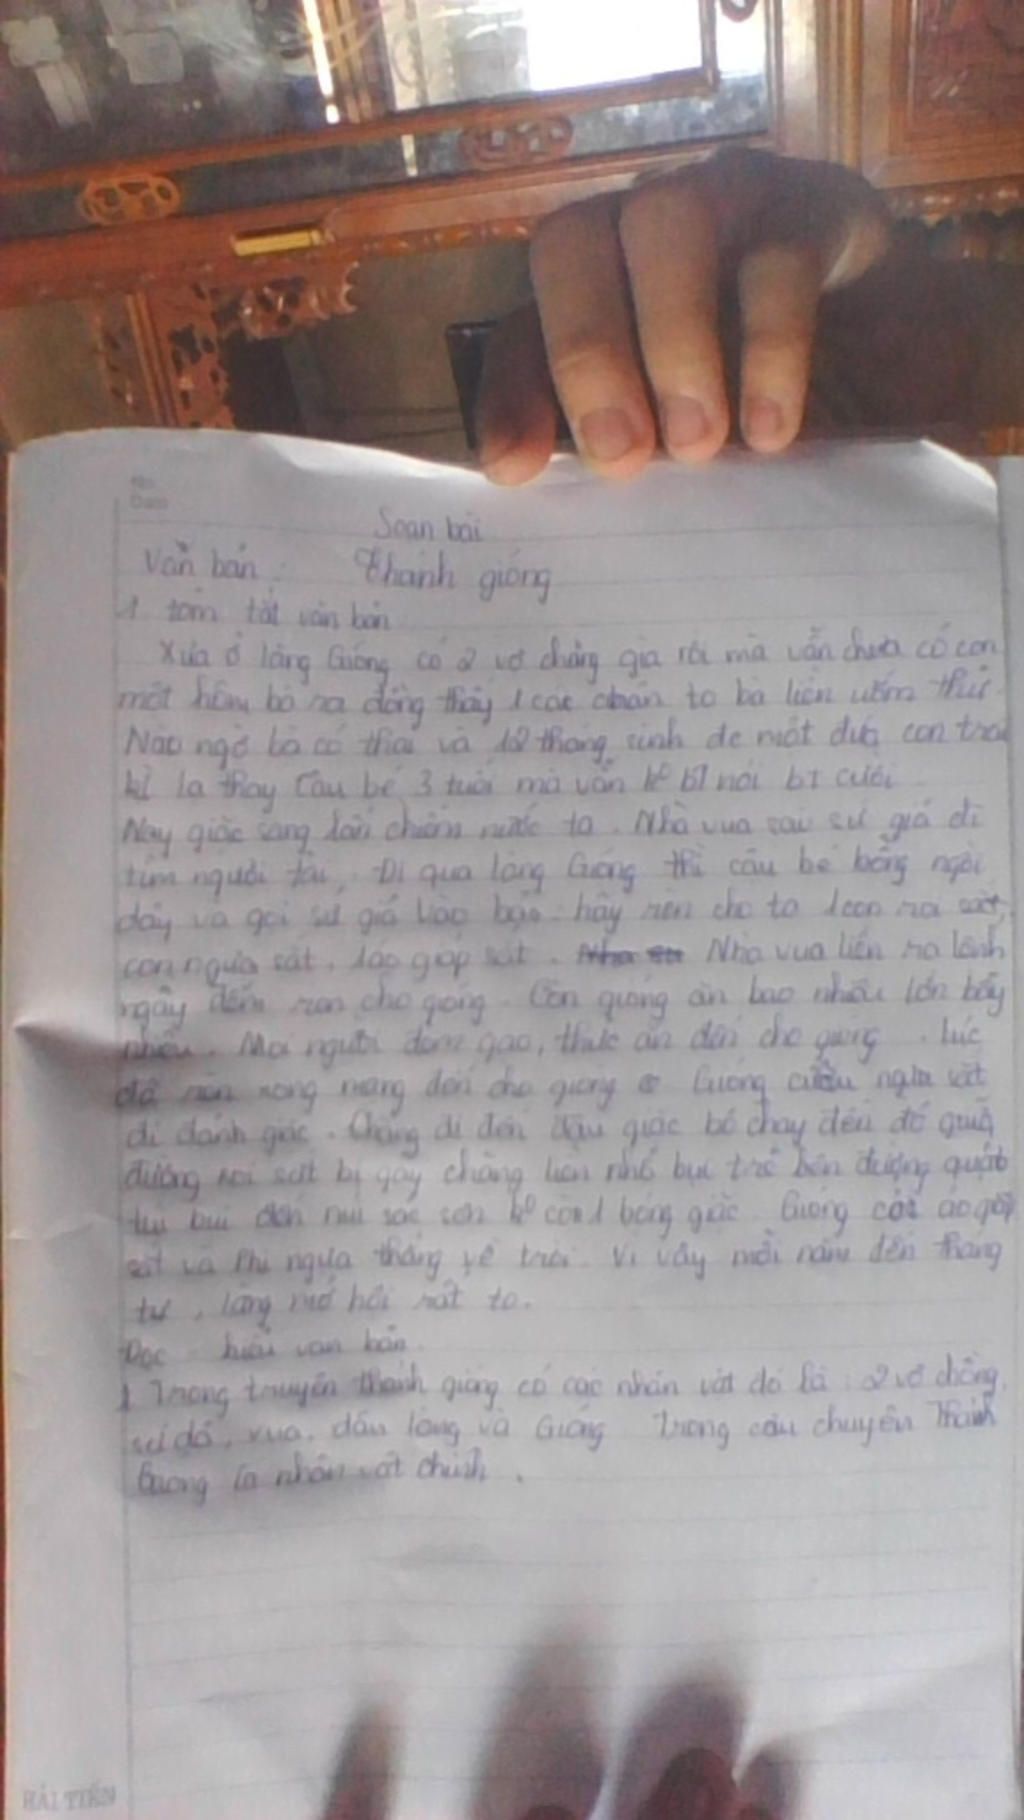 Soạn bài
Văn bản: Thánh gióng
1 tóm tắt văn bản
Xưa ở làng Gióng có 2 vợ chồng già rồi mà vẫn chưa có con
một hôm bà ra đồng thấy 1 các chân to bà liền ướm thử
Nào ngờ bà có thai và 12 tháng sinh đc một đứa con trai
kì lạ thay Cậu bé 3 tuổi mà vẫn ko bt nói bt cười
Nay giặc sang lấn chiếm nước ta. Nhà vua sai sứ giả đi
tìm người tài, Đi qua làng Gióng thì cậu bé bỗng ngồi
dậy và gọi sứ giả vào bảo hãy rèn cho ta 1 con roi sắt,
con ngựa sắt, 1 áo giáp sắt. Nhà vua liền ra lệnh
ngày đêm rèn cho gióng. Còn gióng ăn bao nhiêu lớn bấy
nhiêu. Mọi người đem gạo, thức ăn đến cho gióng. lúc
đó rèn xong mang đến cho gióng Gióng cưỡi ngựa sắt
đi đánh giặc. Chàng đi đến đâu giặc bỏ chạy đến đó giữa
đường roi sắt bị gãy chàng liền nhổ bụi tre bên đường quật
túi bụi đến núi sóc sơn ko còn 1 bóng giặc. Gióng cởi áo giáp
sắt và Phi ngựa thẳng về trời. Vì vậy mỗi năm đến tháng
tư, làng mở hội rất to.
Đọc hiểu văn bản
1 Trong truyện thánh gióng có các nhân vật đó là: 2 vợ chồng,
vua, dân làng và Gióng Trong câu chuyện Thánh
Gióng là nhân vật chính.
HẢI TIẾN